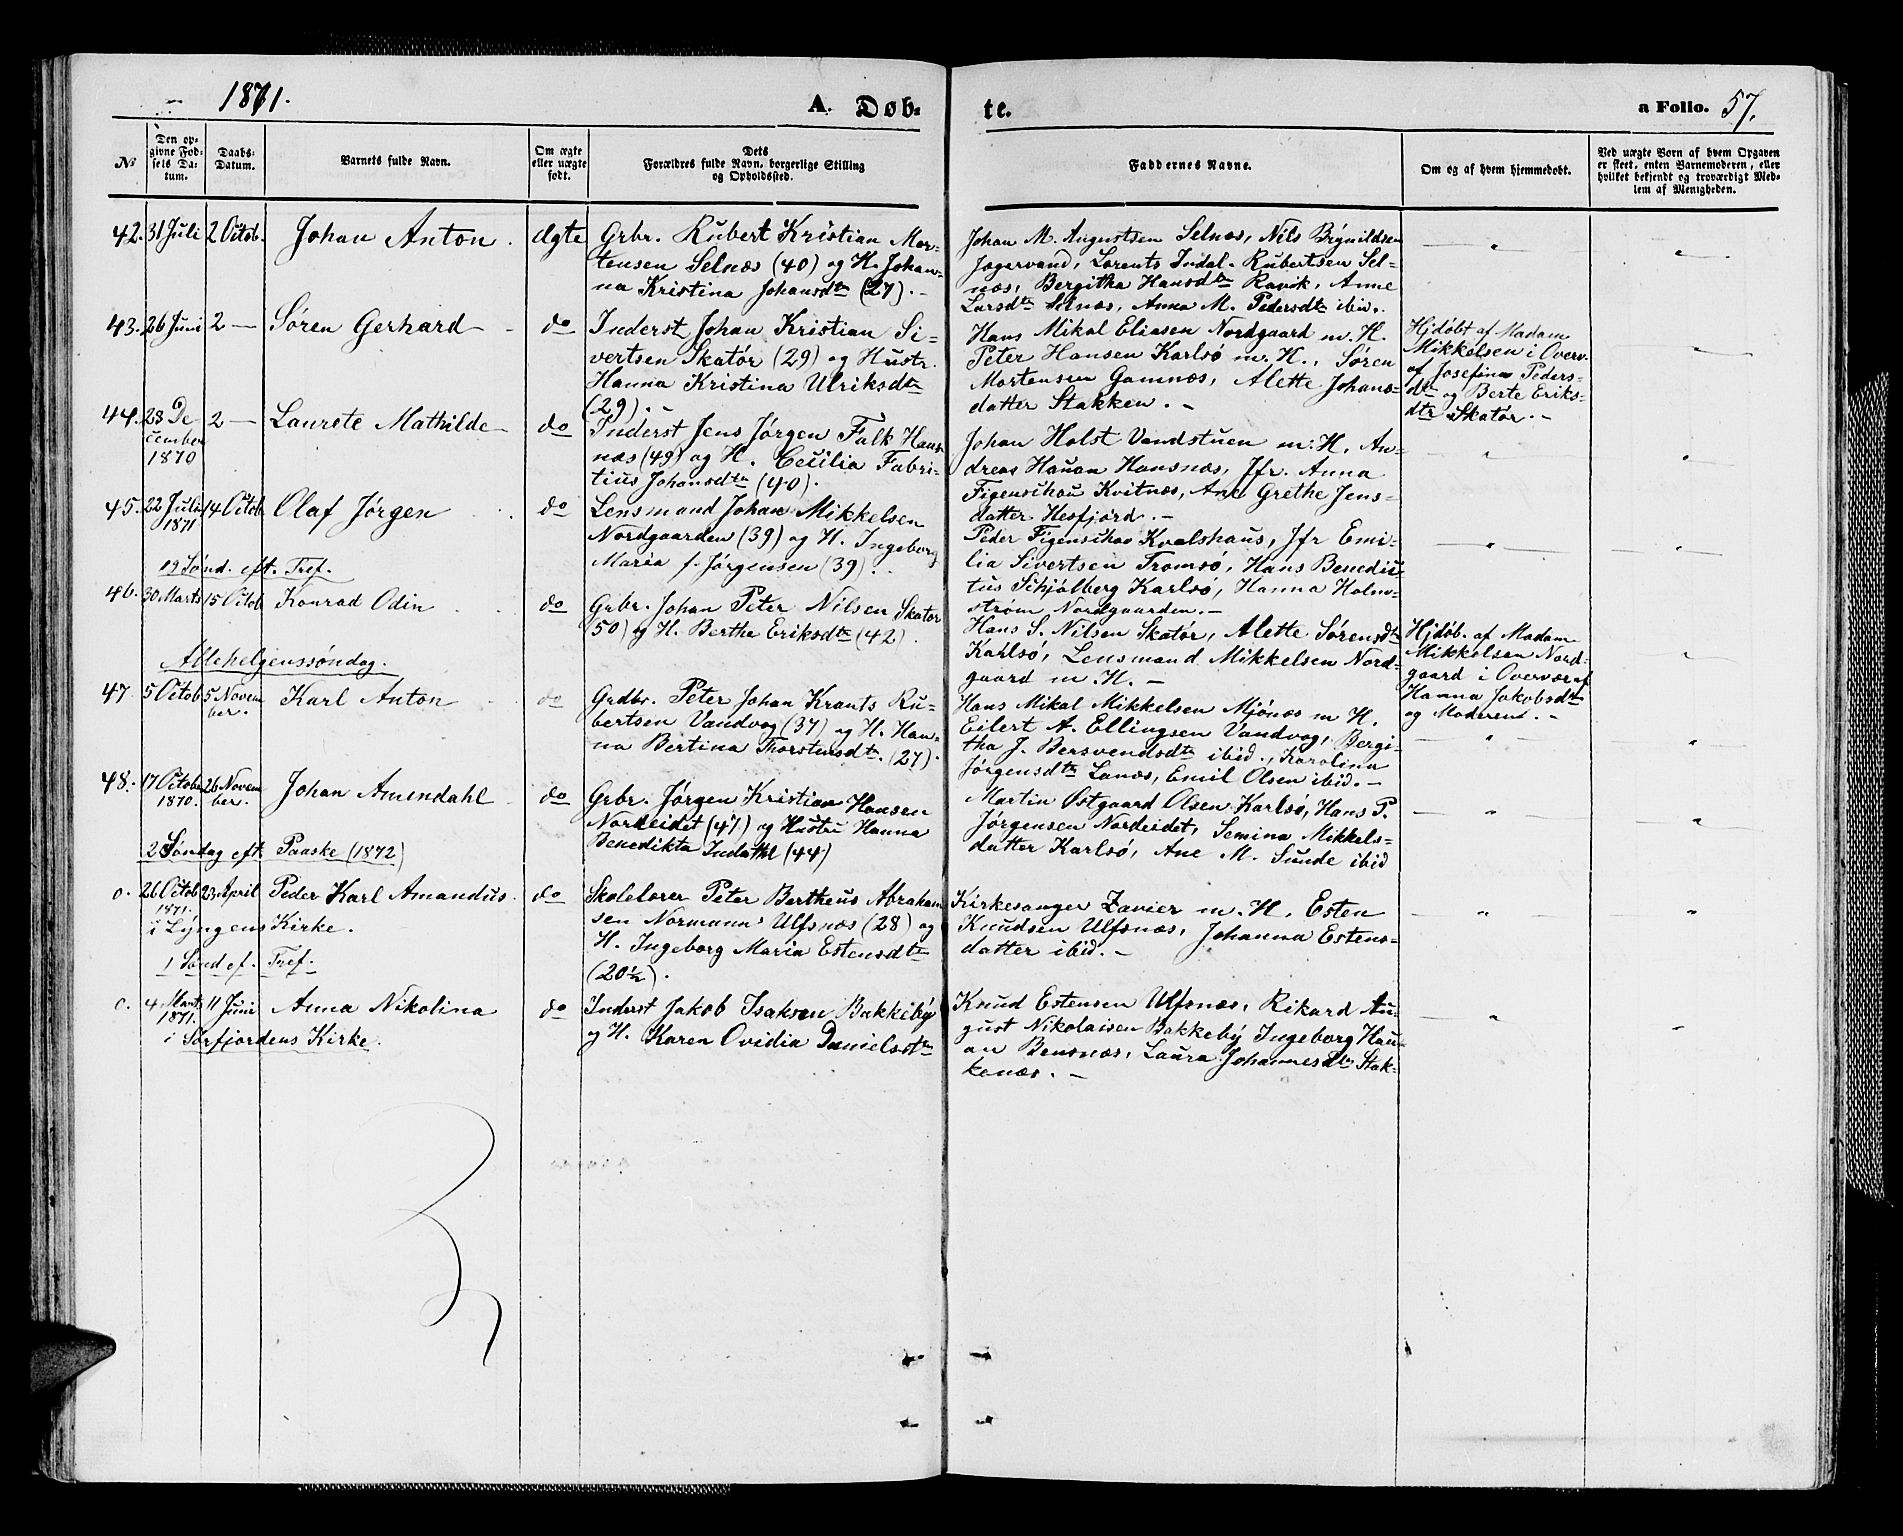 1871.
A. Døb-
te.
a Folio. 57.
№
Den op-
givne Fød-
sels Da-
tum.
Daabs-
Datum.
Barnets fulde Navn.
Om ægte
eller uægte
født.
Dets
Forældres fulde Navn, borgerlige Stilling
og Opholdssted.
Faddernes Navne.
Om og af hvem hjemmedøbt.
Ved uægte Børn af hvem Opgaven
er skeet, enten Barnemoderen, eller
hvilket bekjendt og troværdigt Med-
lem af Menigheden.
42. 31 Juli 2 Octob. Johan Anton. ægte
Grbr. Rubert Kristian Mor-
tensen Selnæs (40) og H. Johan-
na Kristina Johansdtr (27). -
Johan M. Augustsen Selnæs, Nils Brynildsen
Jægervand, Lorents Indal. Rubertsen Sel-
næs, Bergitha Hansdtr Ravik, Anne
Larsdtr Selnæs, Anna M. Pedersdtr ibid.
43. 26 Juni 2 — Søren Gerhard - do
Inderst Johan Kristian Si-
vertsen Skatør (29) og Hustr.
Hanna Kristina Ulriksdtr
(29). -
Hans Mikal Eliasen Nordgaard m. H.
Peter Hansen Karlsø m. H., Søren
Mortensen Gamnæs, Alette Johans-
datter Stakken. -
Hjdøbt af Madam
Mikkelsen i Overv.
af Josefina Peders-
dtr og Berte Eriks-
dtr Skatør. -
44. 23 De-
cember
1870
2 — Laurete Mathilde - do
Inderst Jens Jørgen Falk Hans-
næs (49) og H. Cecilia Fabri-
tius Johansdtr (40).
Johan Holst Vandstuen m. H. An-
dreas Hauan Hansnæs, Jfr. Anna
Figenschou Kvitnæs, Ane Grethe Jens-
datter Hesfjord. -
45. 22 Juli
1871
14 Octob Olaf Jørgen do
Lensmand Johan Mikkelsen
Nordgaarden (39) og H. Ingeborg
Maria f. Jørgensen (39).
Peder Figenschou Kvalshaus, Jfr Emi-
lia Sivertsen Tromsø, Hans Benedic-
tus Schjølberg Karlsø, Hanna Holm-
strøm Nordgaarden. -
19 Sønd. eft. Tref.
46. 30 Marts 15 Octob Konrad Odin do
Grbr. Johan Peter Nilsen Skatør
(50) og H. Berthe Eriksdtr (42).
Hans S. Nilsen Skatør, Alette Sørensdtr
Karlsø, Lensmand Mikkelsen Nord-
gaard m. H. -
Hjdøb. af Madam
Mikkelsen Nord-
gaard i Overvær af
Hanna Jakobsdtr
og Moderen. -
Allehelgenssøndag.
47 5 Octob 5 Novem-
ber.
Karl Anton do
Grdbr. Peter Johan Krants Ru-
bertsen Vandvog (37) og H. Han-
na Bertina Thorstensdtr. (27).
Hans Mikal Mikkelsen Mjønæs m H.
Eilert A. Ellingsen Vandvog, Bergi-
tha J. Bersvendsdtr ibid., Karolina
Jørgensdtr Lanæs, Emil Olsen ibid. -
48. 17 Octobr
1870.
26 Novem-
ber.
Johan Amendahl do
Grbr. Jørgen Kristian Hansen
Nordeidet (47) og Hustru Hanna
Benedikta Indahl (44)
Martin Østgaard Olsen Karlsø, Hans P.
Jørgensen Nordeidet, Semina Mikkels-
datter Karlsø, Ane M. Sunde ibid
2 Søndag eft Paaske (1872)
o. 26 Octob
1871.
23 April Peder Karl Amandus. do
i Lyngens Kirke.
Skolelærer Peter Bertheus Abraham-
sen Normann Ulfsnæs (28) og
H. Ingeborg Maria Estensdtr
(20½).
Kirkesanger Zavier m. H. Esten
Knudsen Ulfsnæs, Johanna Estens-
datter ibid. -
1 Sønd ef. Tref.
o. 4 Marts
1871.
11 Juni Anna Nikolina do
i Sørfjordens Kirke.
Inderst Jakob Isaksen Bakkeby
og H. Karen Ovidia Danielsdtr
Knud Estensen Ulfsnæs, Rikard Au-
gust Nikolaisen Bakkeby Ingeborg Hau-
an Bensnæs, Laura Johannesdtr Stak-
kenæs. -